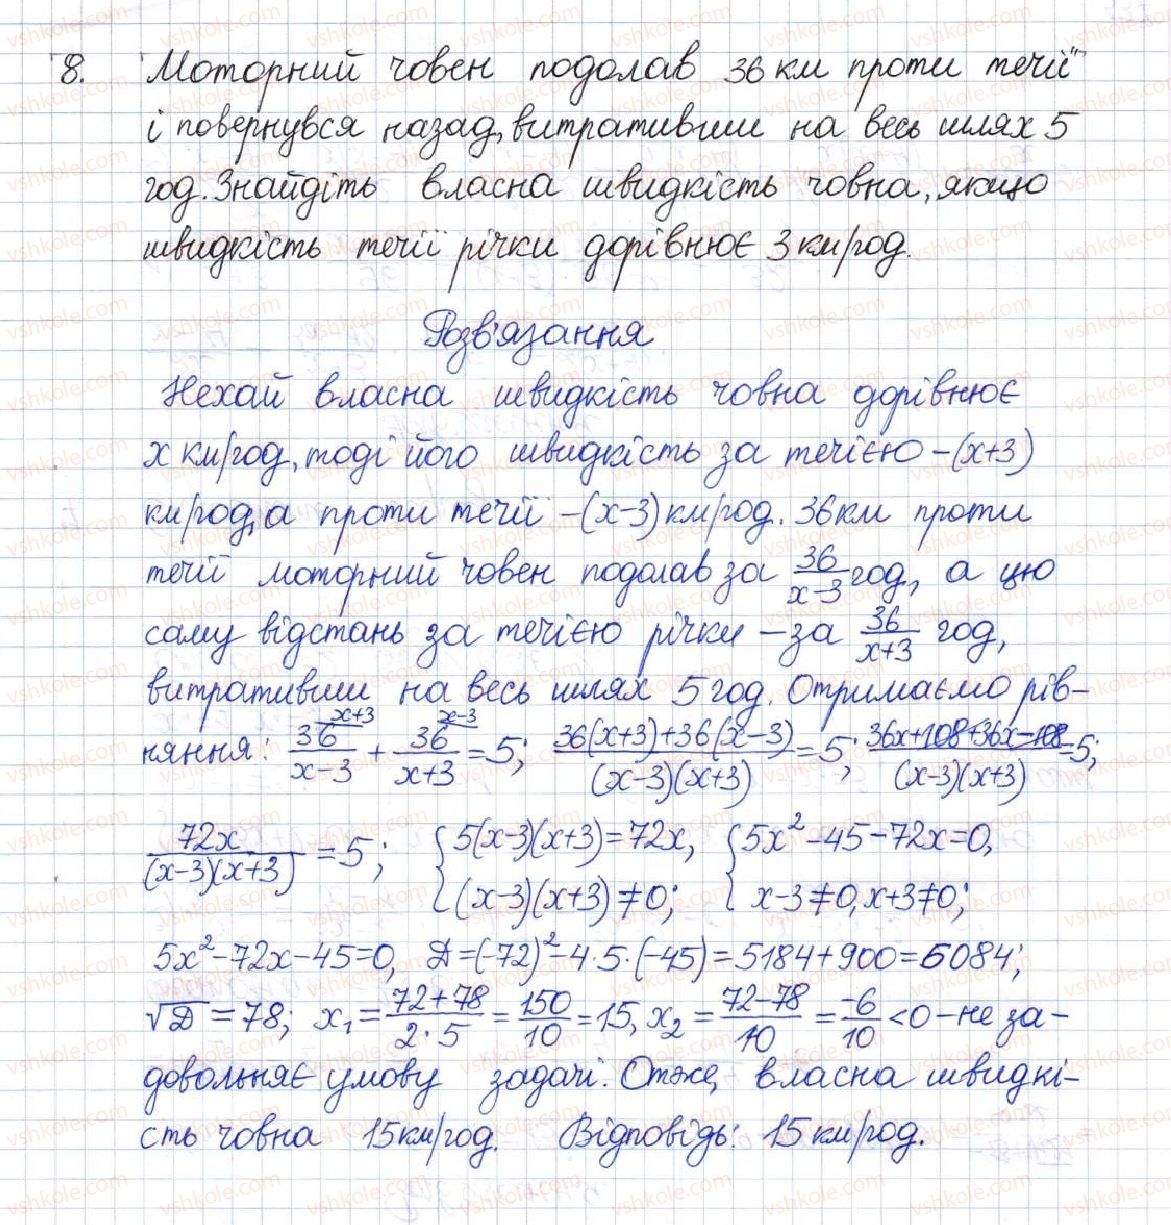 8. Моторний човен подолав 36 км проти течії
і повернувся назад, витративши на весь шлях 5
год. Знайдіть власна швидкість човна, якщо
швидкість течії річки дорівнює 3 км/год.
Розв'язання
Нехай власна швидкість човна дорівнює
x км/год, тоді його швидкість за течією – (x+3)
км/год, а проти течії – (x-3) км/год. 36 км проти
течії моторний човен подолав за 36/(x-3) год, а цю
саму відстань за течією річки – за 36/(x+3) год,
витративши на весь шлях 5 год. Отримаємо рів-
няння: 36/(x-3) (x+3) + 36/(x+3) (x-3) = 5; (36(x+3)+36(x-3))/((x-3)(x+3)) = 5; (36x+108+36x-108)/((x-3)(x+3)) = 5;
72x/((x-3)(x+3)) = 5; { 5(x-3)(x+3)=72x, (x-3)(x+3)≠0; { 5x²-45-72x=0, x-3≠0, x+3≠0;
5x²-72x-45=0, Д=(-72)²-4·5·(-45)=5184+900=6084;
√Д=78; x₁=(72+78)/(2·5)=150/10=15, x₂=(72-78)/10=-6/10<0 – не за-
довольняє умову задачі. Отже, власна швидкі-
сть човна 15 км/год. Відповідь: 15 км/год.
vshkole.com